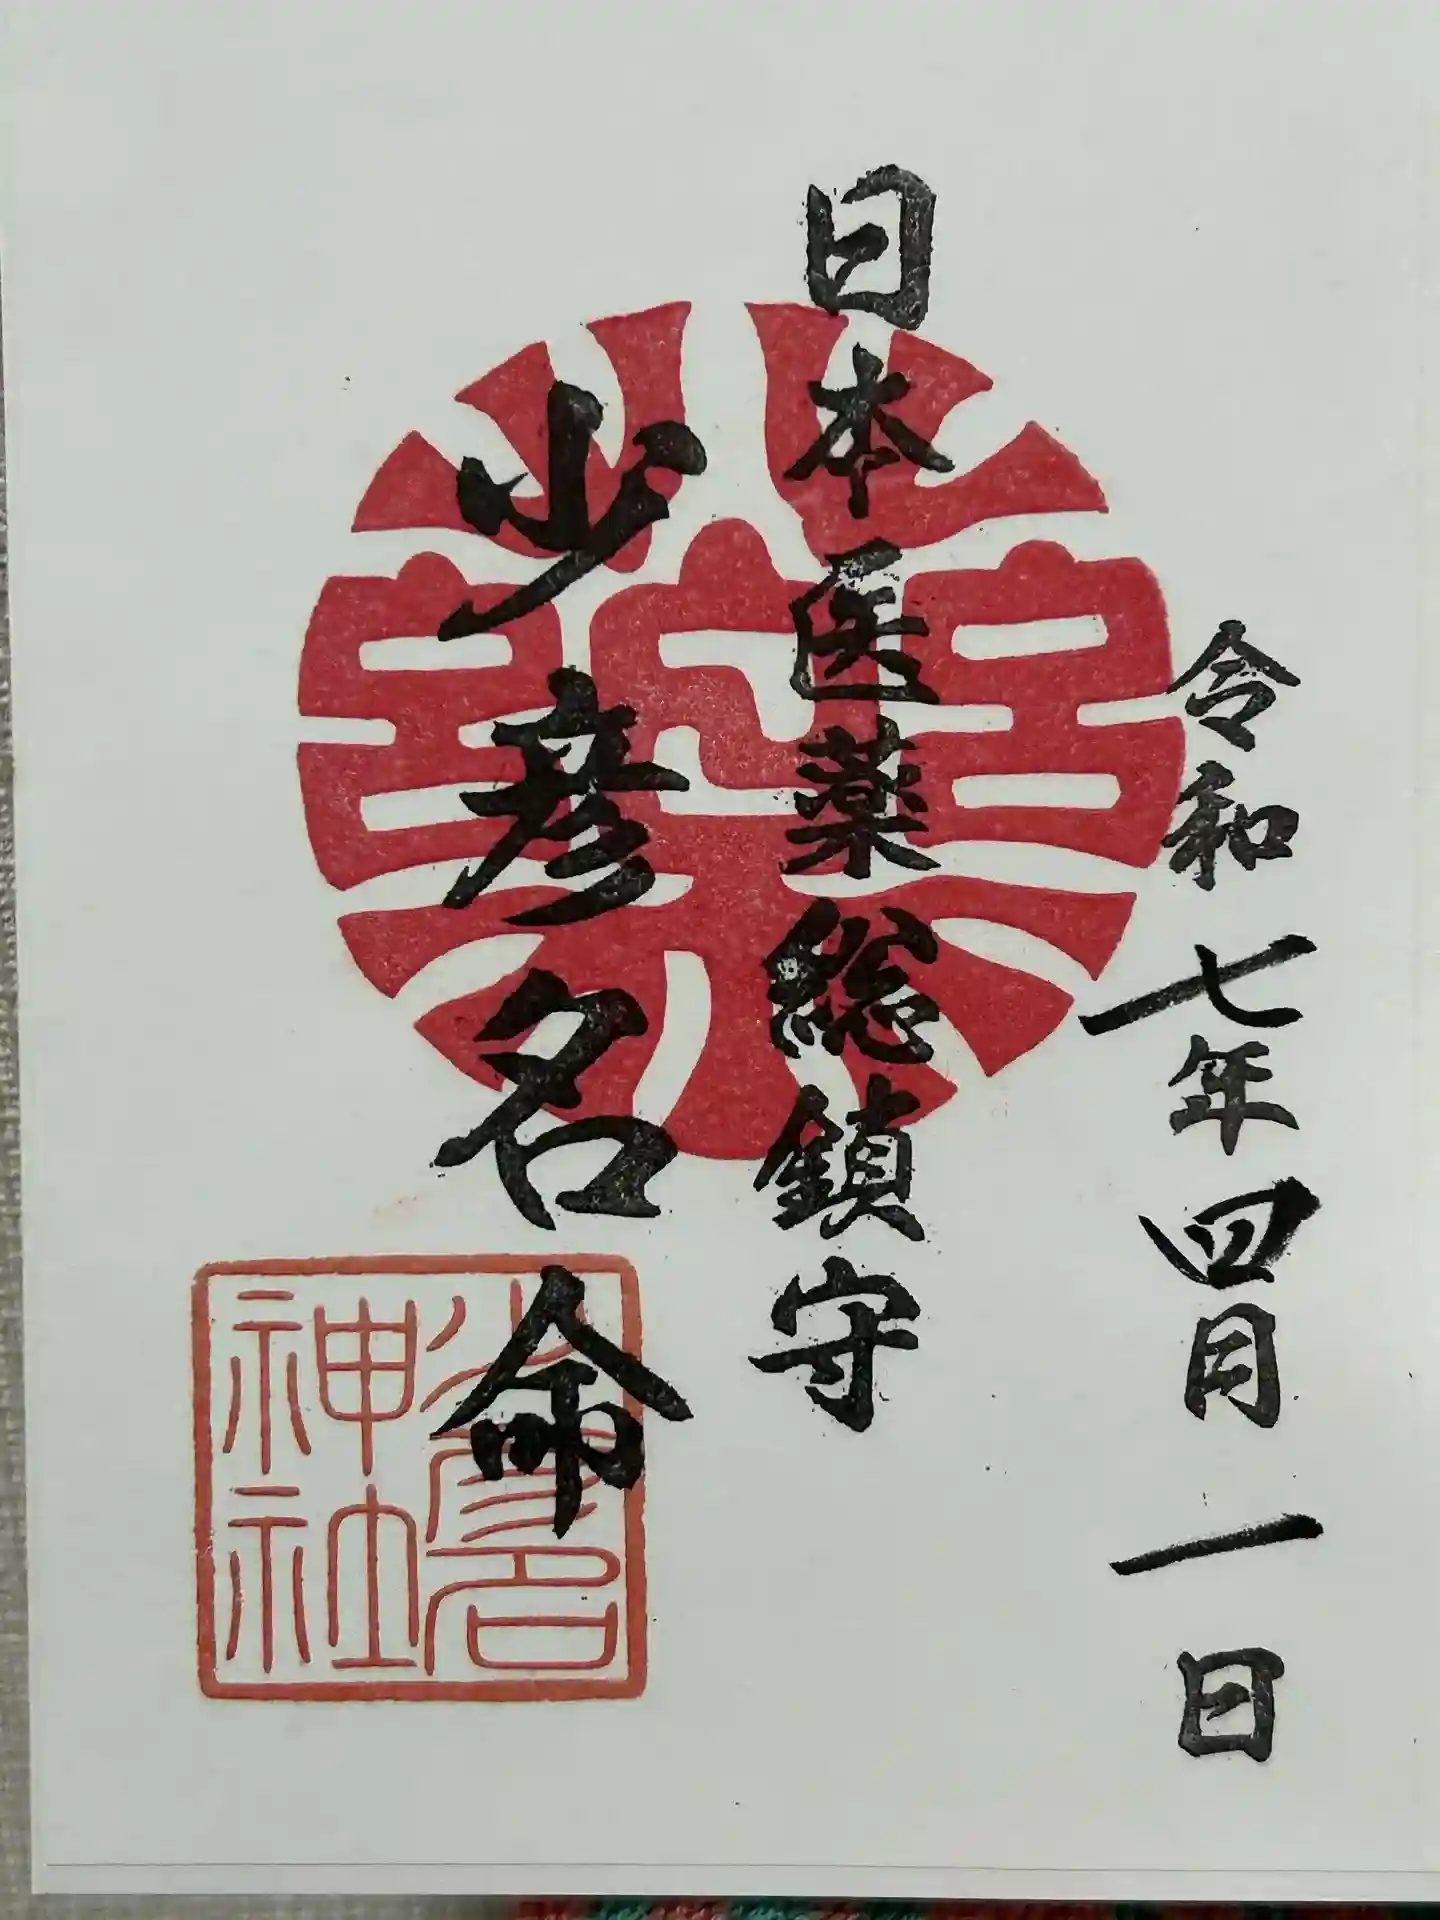 令和七年四月一日
日本医薬総鎮守
少彦名命
藥
少彦名
神社